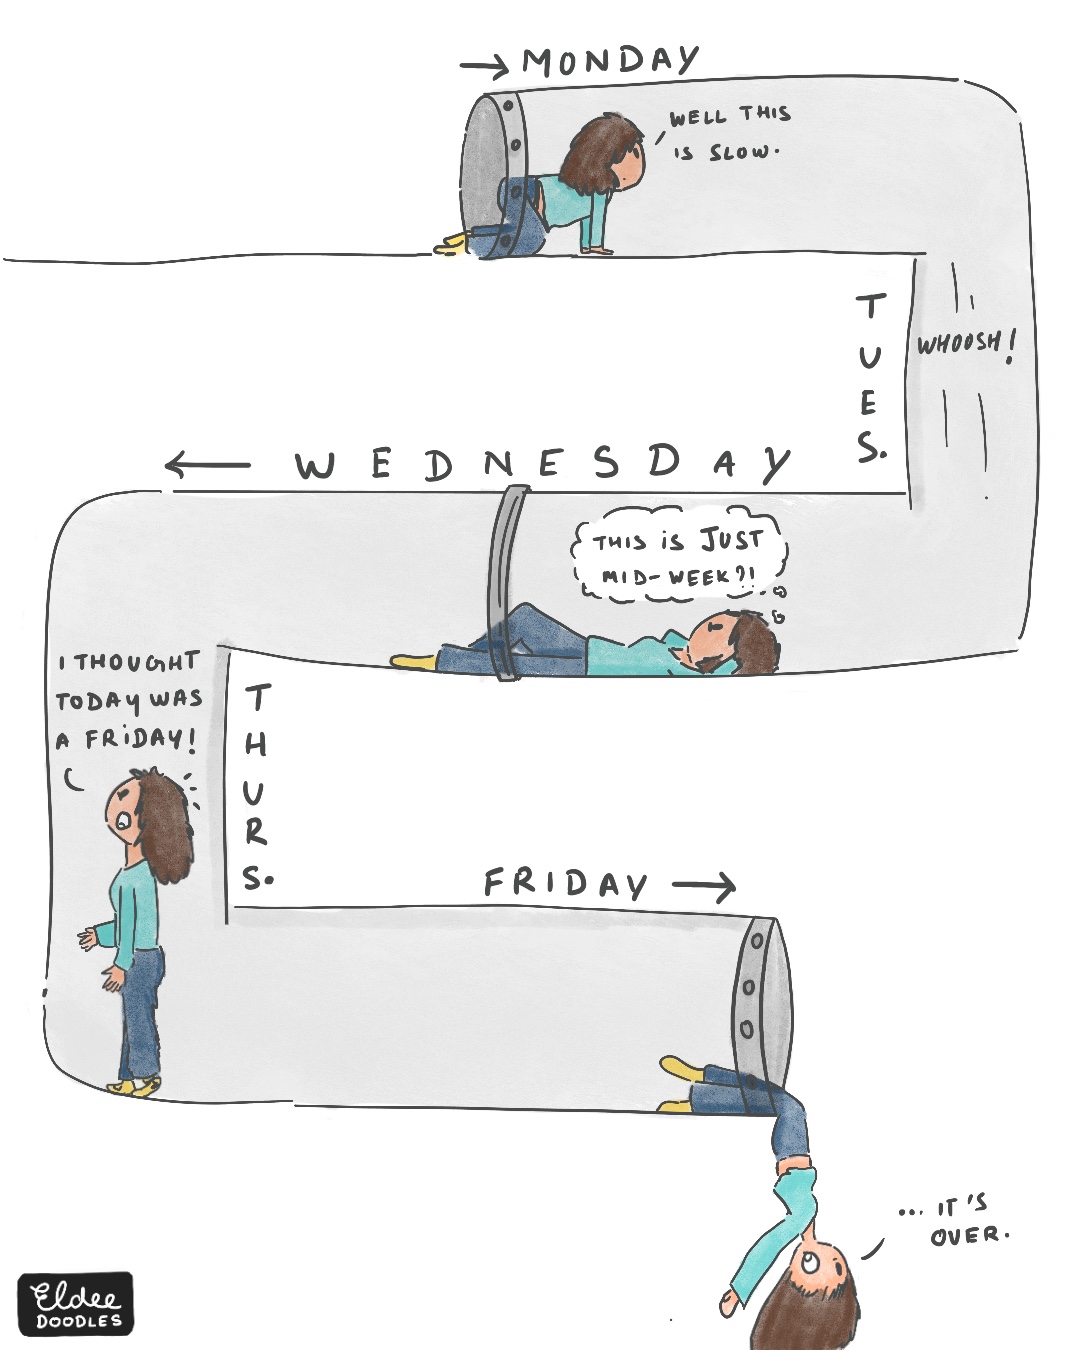 → MONDAY
WELL THIS
IS SLOW.
TUES.
WHOOSH!
← WEDNESDAY
THIS IS JUST
MID-WEEK?!
I THOUGHT
TODAY WAS
A FRIDAY!
THURS.
FRIDAY →
... IT'S
OVER.
Eldee
DOODLES